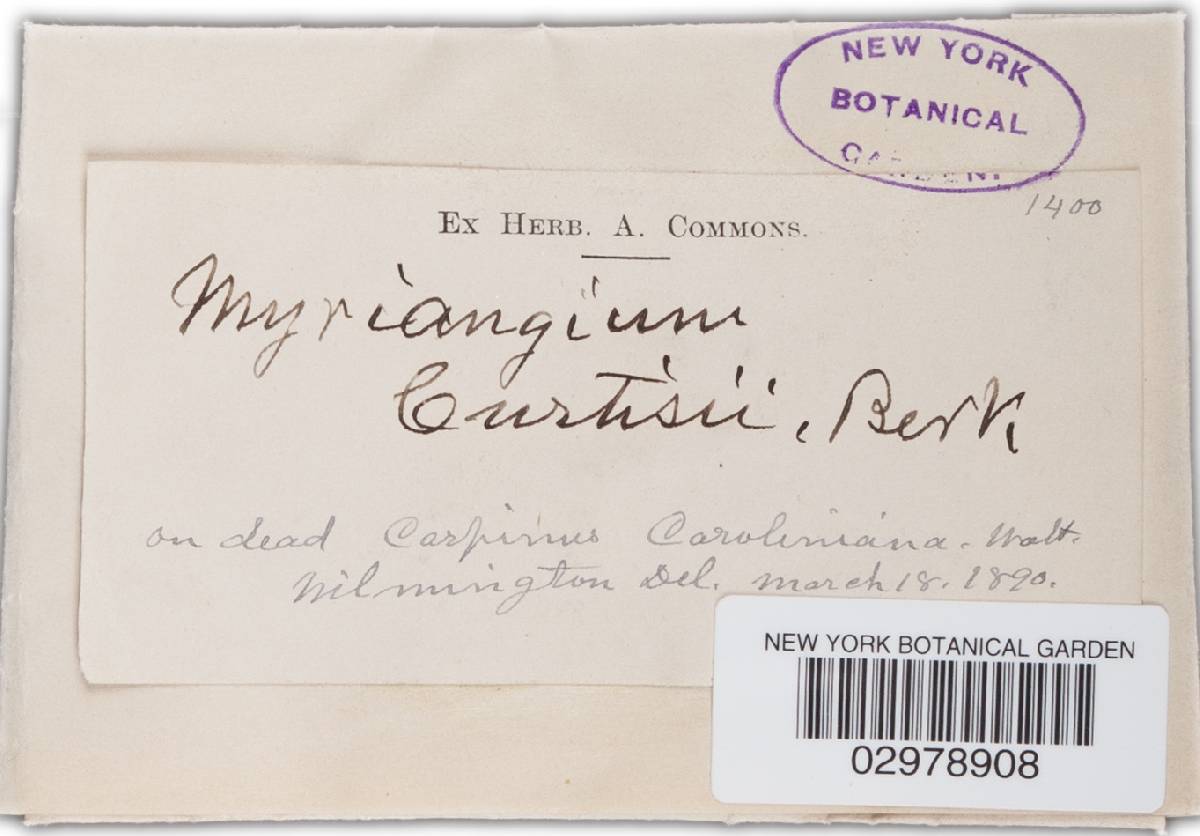 NEW YORK
BOTANICAL
GARDEN.
1400
EX HERB. A. COMMONS.
Myriangium
Curtisii, Berk
on dead Carpinus Caroliniana. Walt.
Wilmington Del. March 18. 1890.
NEW YORK BOTANICAL GARDEN
02978908